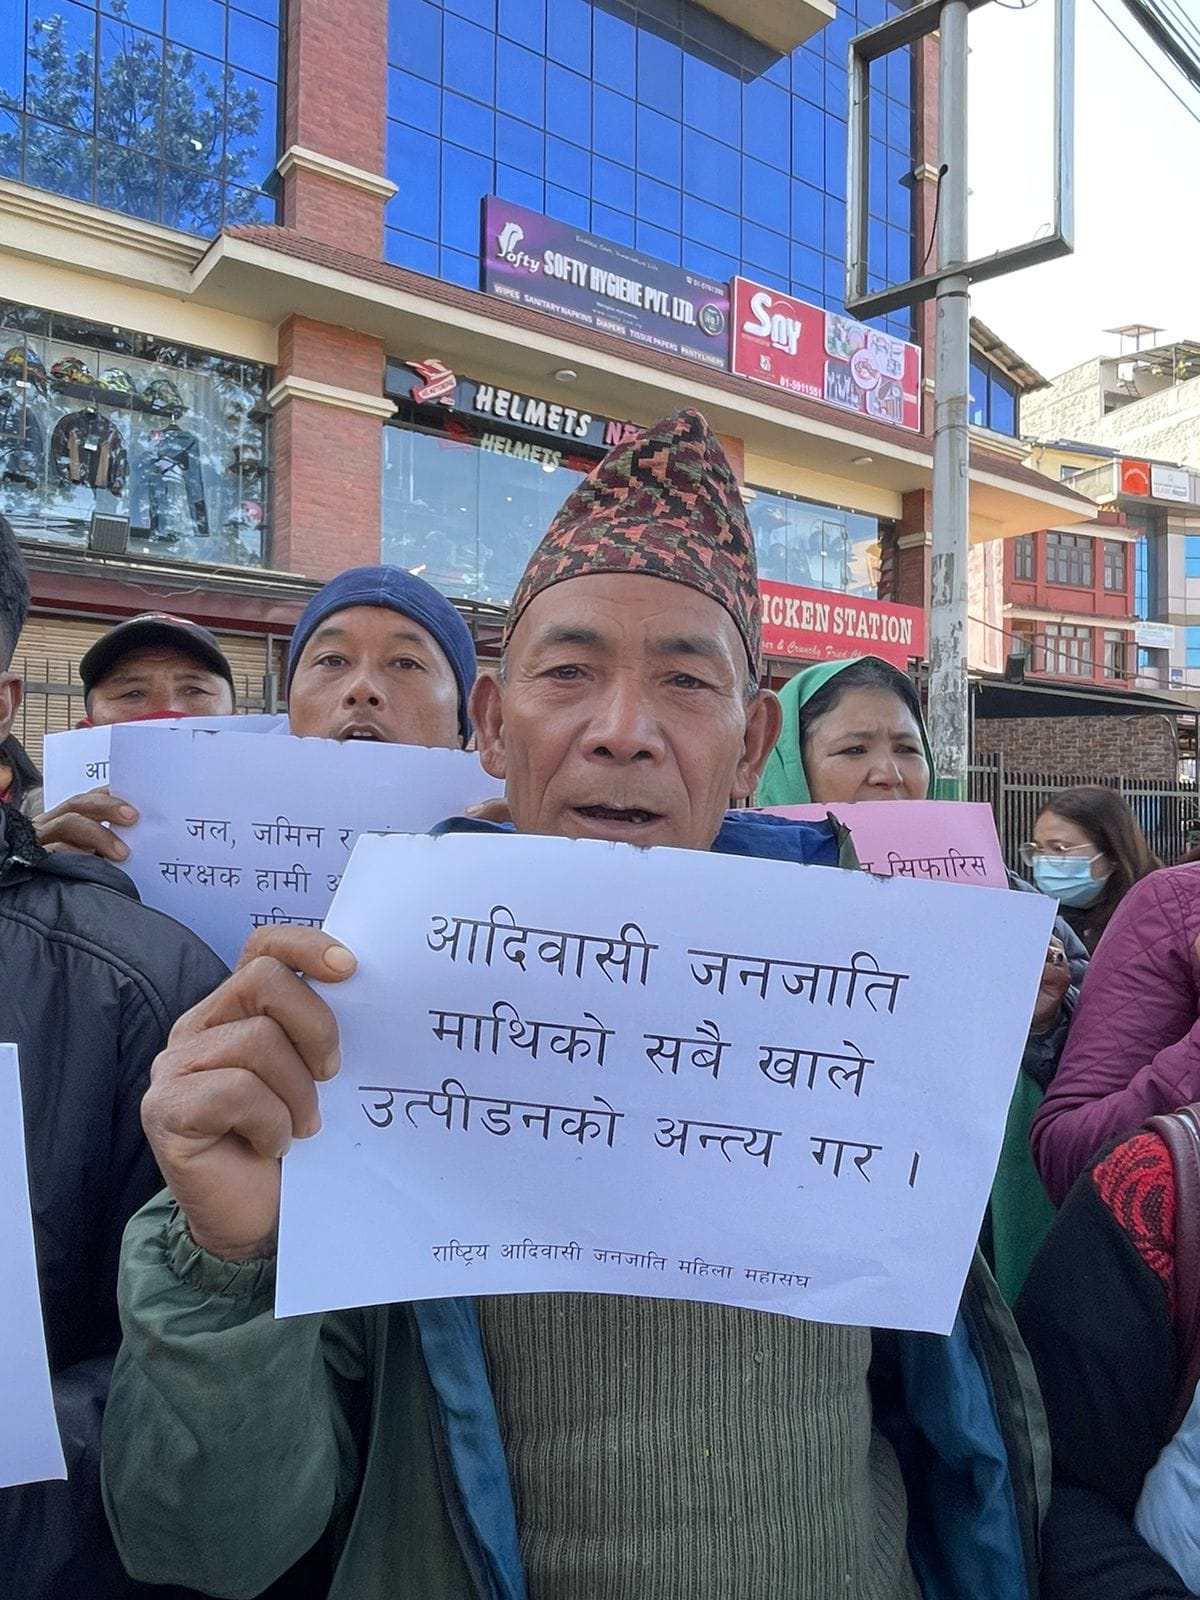 Softy
SOFTY HYGIENE PVT. LTD.
WIPES SANITARY NAPKINS DIAPERS TISSUE PAPERS PANTY LINERS
Sny
01-5911551
HELMETS
HELMETS
ICKEN STATION
& Crunchy Fried
जल, जमिन र
संरक्षक हामी
महिला
सिफारिस
आदिवासी जनजाति
माथिको सबै खाले
उत्पीडनको अन्त्य गर ।
राष्ट्रिय आदिवासी जनजाति महिला महासंघ